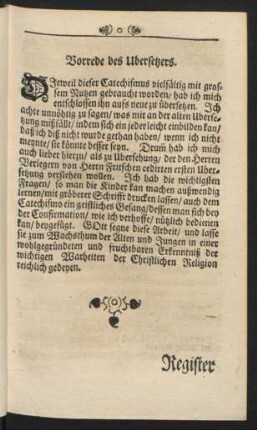 Vorrede des Ubersetzers.
DJeweil dieser Catechismus vielfältig mit gros-
sem Nutzen gebraucht worden/ hab ich mich
entschlossen ihn aufs neue zu übersetzen. Ich
achte unnöhtig zu sagen/ was mit an der alten Uberse-
tzung mißfällt/ indem sich ein jeder leicht einbilden kan/
daß ich diß nicht wurde gethan haben/ wenn ich nicht
meynte/ sie könnte besser seyn. Drüm hab ich mich
auch lieber hierzu/ als zu Ubersehung/ der den Herren
Verlegern von Herrn Fritschen cedirten ersten Uber-
setzung verstehen wollen. Ich hab die wichtigsten
Fragen/ so man die Kinder kan machen außwendig
lernen/ mit gröberer Schrifft drucken lassen/ auch dem
Catechismo ein geistliches Gesang/ dessen man sich bey
der Confirmation/ wie ich verhoffe/ nützlich bedienen
kan/ beygefügt. GOtt segne diese Arbeit/ und lasse
sie zum Wachsthum der Alten und Jungen in einer
wohlgegründeten und fruchtbaren Erkenntniß der
wichtigen Warheiten der Christlichen Religion
reichlich gedeyen.
Register